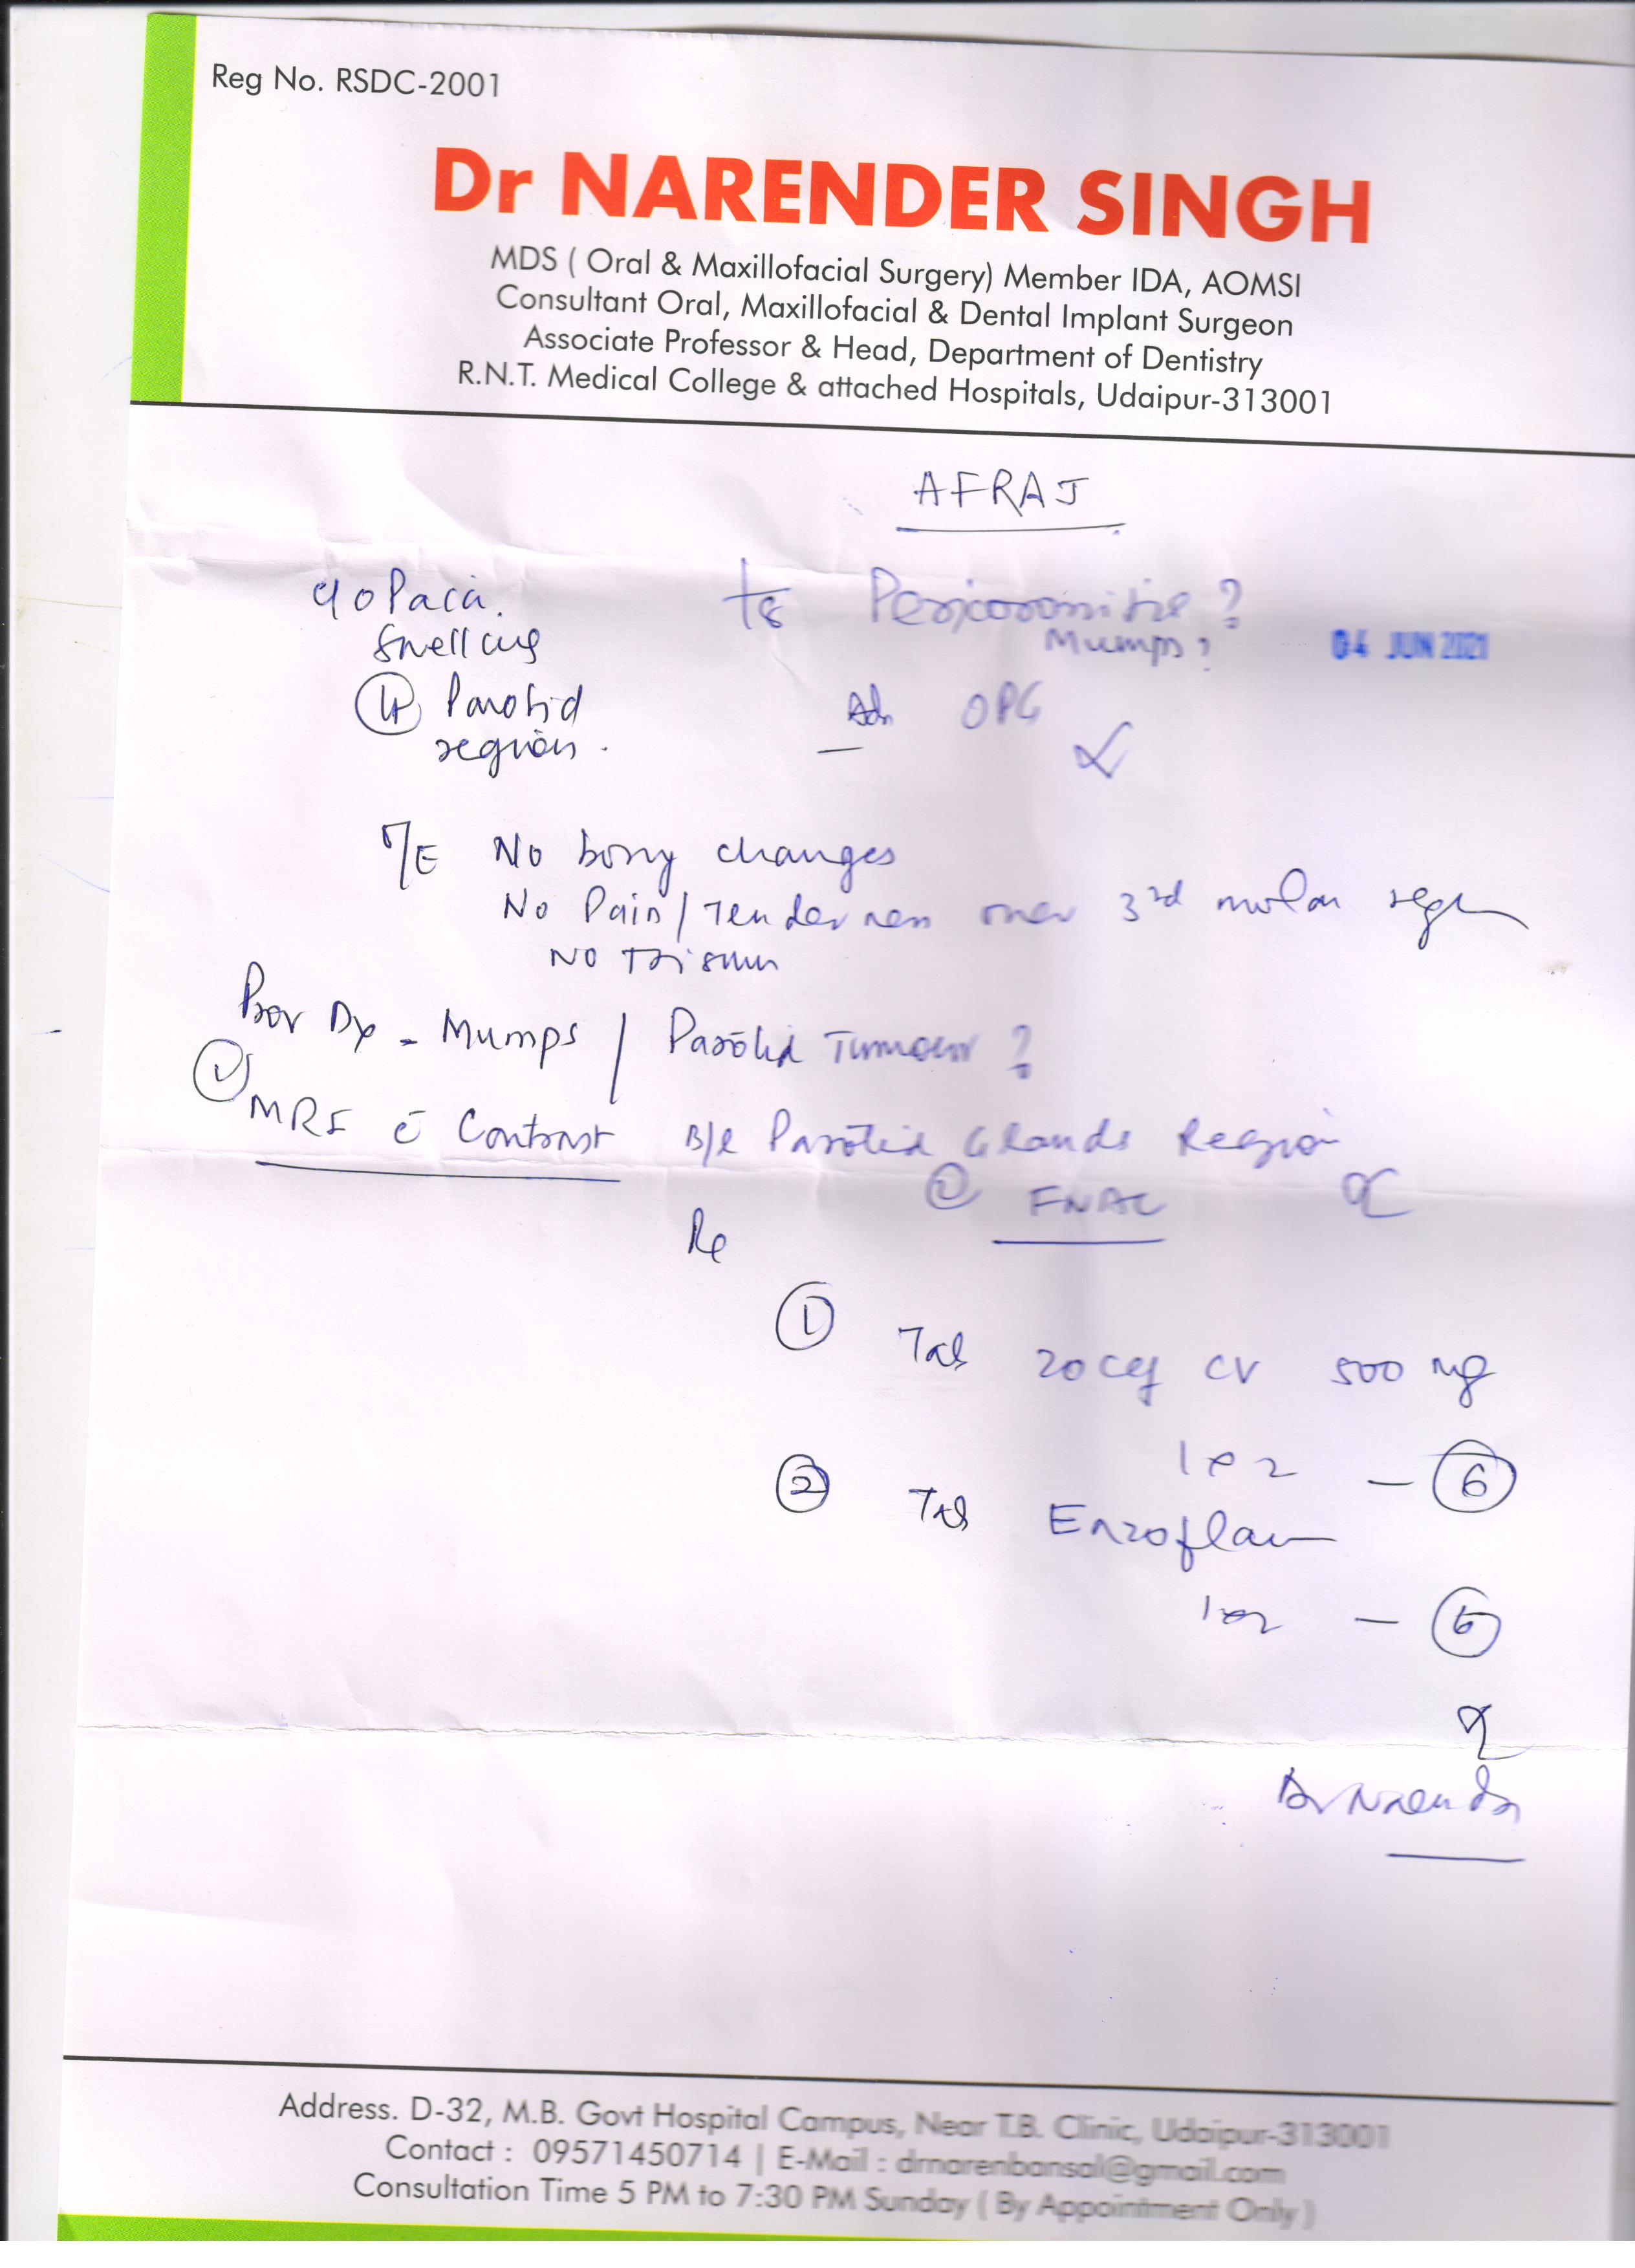 Reg No. RSDC-2001
Dr NARENDER SINGH
MDS ( Oral & Maxillofacial Surgery) Member IDA, AOMSI
Consultant Oral, Maxillofacial & Dental Implant Surgeon
Associate Professor & Head, Department of Dentistry
R.N.T. Medical College & attached Hospitals, Udaipur-313001
AFRAJ
c/o Pain.
Swelling
Parotid
region.
Pericoronitis?
Mumps?
04 JUN 2021
Adv OPG
O/E No bony changes
No Pain/Tenderness over 3rd molar region
No Trismus
Prov Dx - Mumps / Parotid Tumour ?
① MRI c̄ Contrast B/L Parotid Glands Region
② FNAC
Rx
① Tab Zocef CV 500 mg
1x2 - 6
② Tab Enzoflam
1x2 -
Dr Narender
Address. D-32, M.B. Govt Hospital Campus, Near T.B. Clinic, Udaipur-313001
Contact : 09571450714 | E-Mail : drnarenbansal@gmail.com
Consultation Time 5 PM to 7:30 PM Sunday ( By Appointment Only )